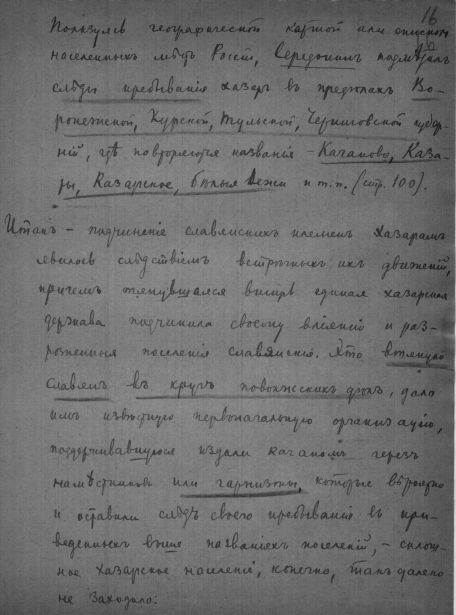 16
Пользуясь географической картой или списком
населенныхъ мѣстъ Россіи, Середонинъ подмѣчалъ
слѣды пребыванія хазаръ въ предѣлахъ Во-
ронежской, Курской, Тульской, Черниговской губер-
ній, гдѣ повторяются названія – Каганово, Каза-
ры, Казарское, бѣлыя Вежи и т.п. (стр. 100).
Итакъ – подчиненіе славянскихъ племенъ хазарамъ
явилось слѣдствіемъ встрѣчныхъ ихъ движеній,
причемъ тянувшаяся вширь единая хазарская
держава подчинила своему вліянію и раз-
розненныя поселенія славянскія. Это втянуло
Славянъ въ кругъ поволжскихъ дѣлъ, дало
имъ извѣстную первоначальную организацію,
поддерживавшуюся издали каганомъ черезъ
намѣстниковъ или гарнизоны, которые вѣроятно
и оставили слѣдъ своего пребыванія въ при-
веденныхъ выше названіяхъ поселеній, – сплош-
ное хазарское населеніе, конечно, такъ далеко
не заходило.